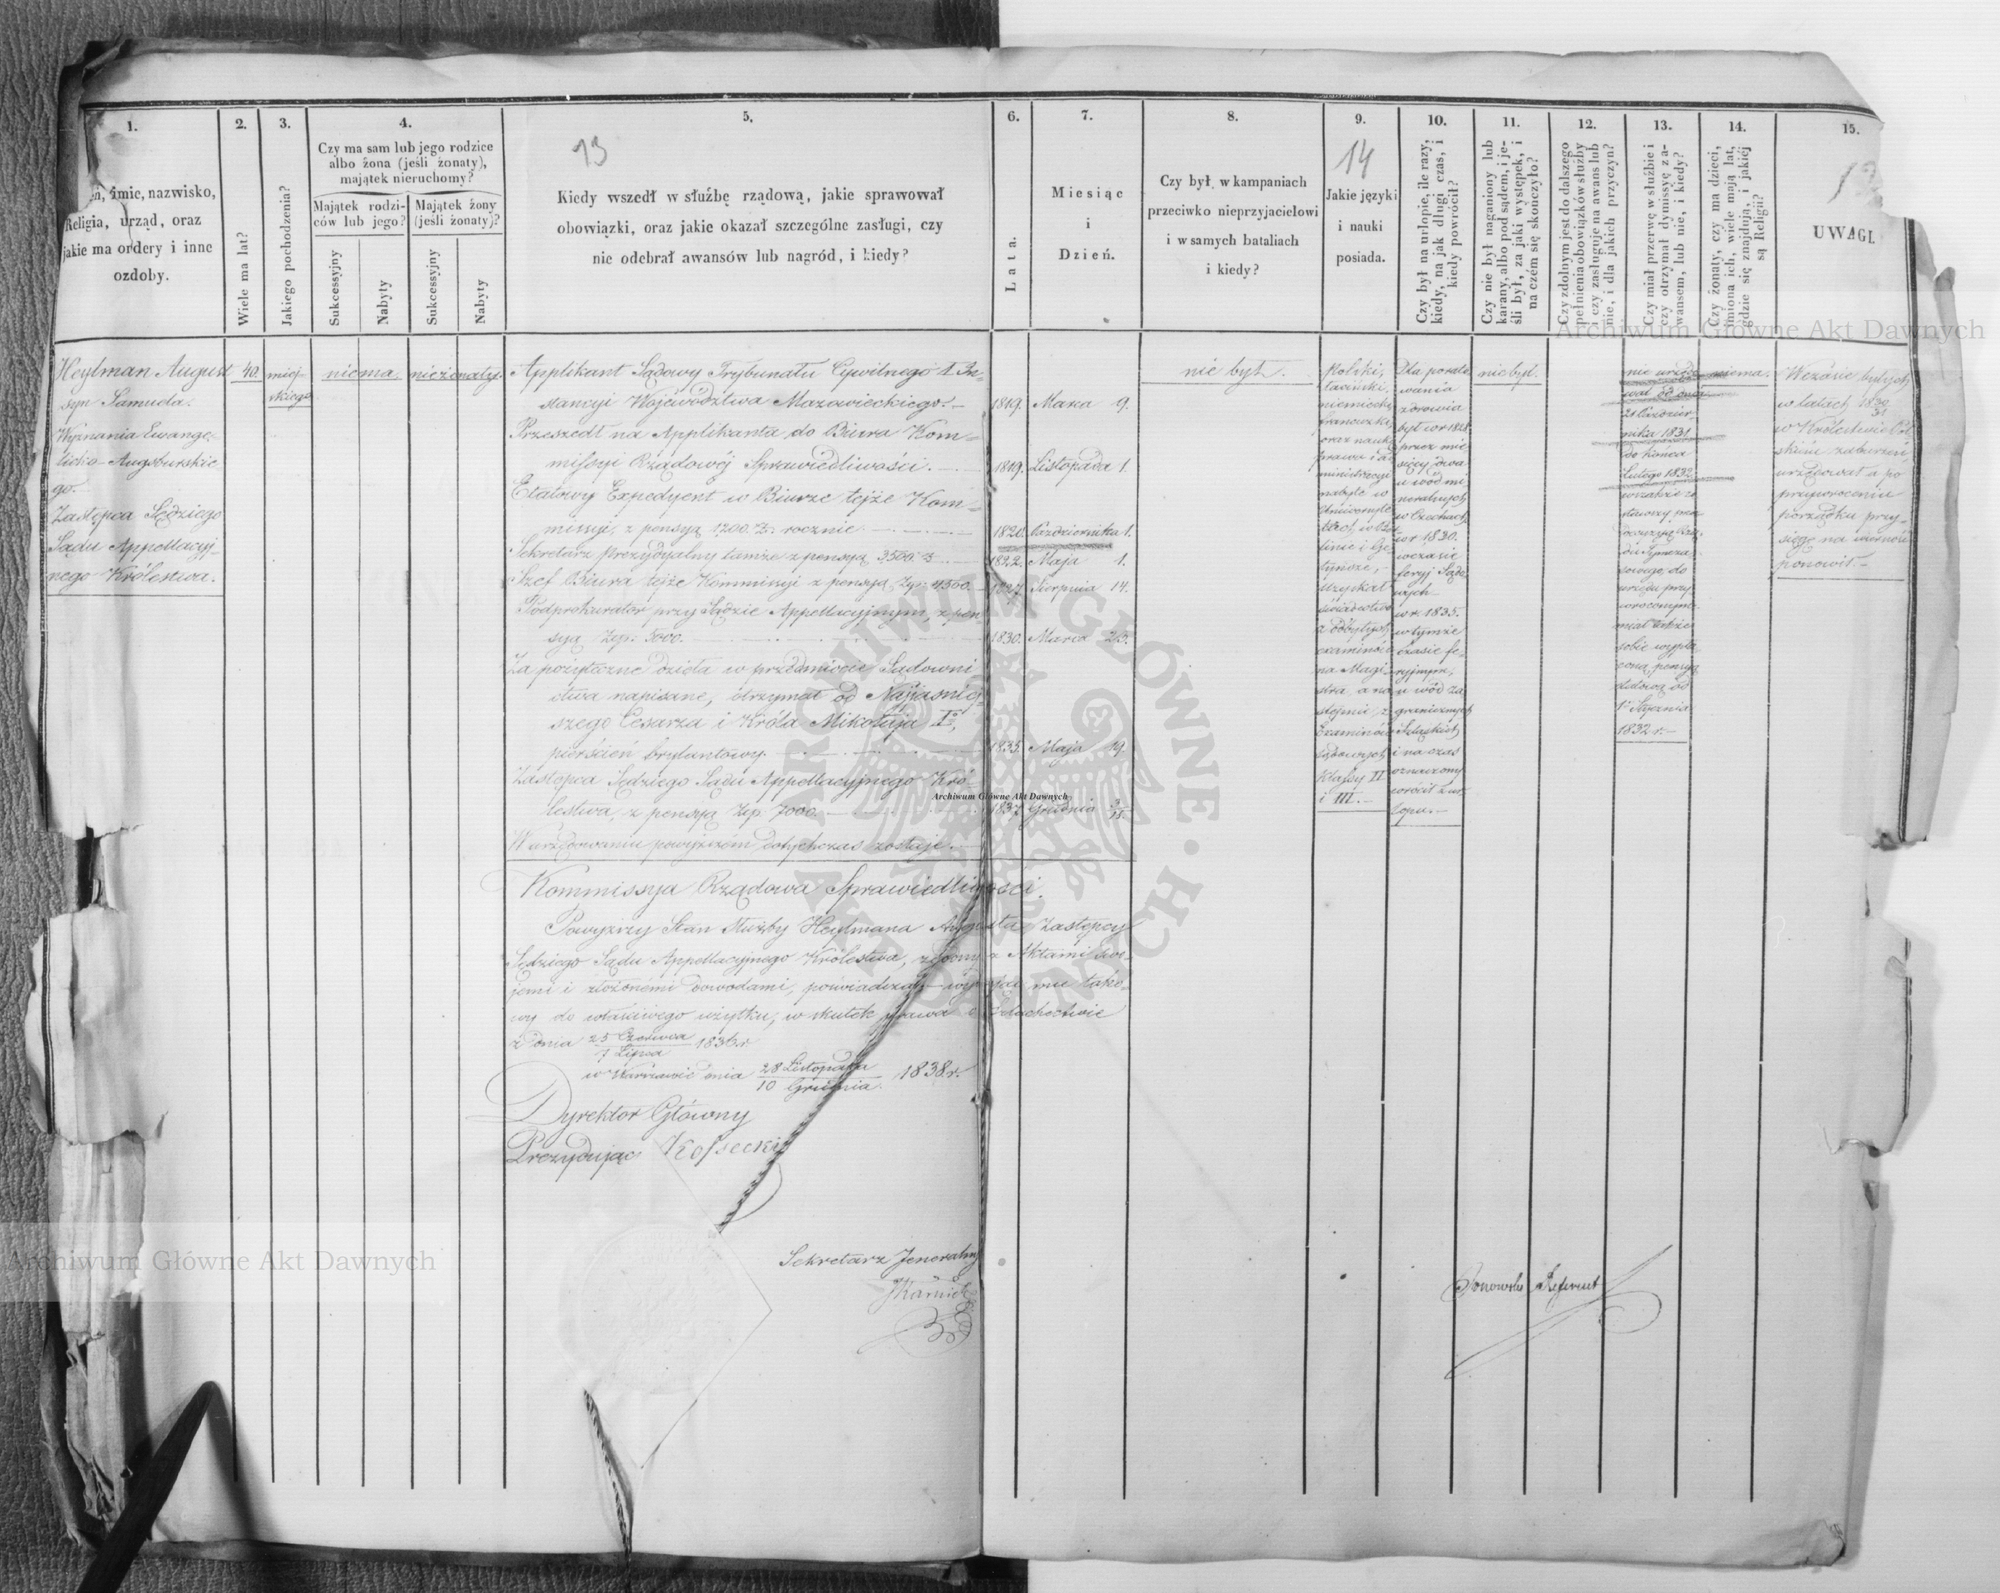 13
14
1.
Stopień, imie, nazwisko,
Religia, urząd, oraz
jakie ma ordery i inne
ozdoby.
2.
Wiele ma lat?
3.
Jakiego pochodzenia?
4.
Czy ma sam lub jego rodzice
albo żona (jeśli żonaty),
majątek nieruchomy?
Majątek rodzi-
ców lub jego?
Majątek żony
(jeśli żonaty)?
Sukcessyjny
Nabyty
Sukcessyjny
Nabyty
5.
Kiedy wszedł w służbę rządową, jakie sprawował
obowiązki, oraz jakie okazał szczególne zasługi, czy
nie odebrał awansów lub nagród, i kiedy?
6.
Lata.
7.
Miesiąc
i
Dzień.
8.
Czy był w kampaniach
przeciwko nieprzyjacielowi
i w samych bataliach
i kiedy?
9.
Jakie języki
i nauki
posiada.
10.
Czy był na urlopie, ile razy,
kiedy, na jak długi czas, i
kiedy powrócił?
11.
Czy nie był naganiony lub
karany, albo pod sądem, i je-
śli był, za jaki występek, i
na czém się skończyło?
12.
Czy zdolnym jest do dalszego
pełnienia obowiązków służby
czy zasługuje na awans lub
nie, i dla jakich przyczyn?
13.
Czy miał przerwę w służbie i
czy otrzymał dymissyę z a-
wansem, lub nie, i kiedy?
14.
Czy żonaty, czy ma dzieci,
imiona ich, wiele mają lat,
gdzie się znajdują, i jakiej
są Religii?
15.
UWAGI.
Heylman August
syn Samuela.
Wyznania Ewange-
licko-Augsburskie-
go.
Zastępca Sędziego
Sądu Appellacyj-
nego Królestwa.
40.
miej-
skiego
niema.
nieżonaty.
Applikant Sądowy Trybunału Cywilnego 1. In-
stancyi Województwa Mazowieckiego. 1819. Marca 9.
Przeszedł na Applikanta do Biura Kom-
missyi Rządowéj Sprawiedliwości. 1819. Listopada 1.
Etatowy Expedyent w Biurze tejże Kom-
missyi, z pensyą 1200. Zł. rocznie 1820. Października 1.
Sekretarz Prezydyalny tamże z pensyą 3500. Zł 1822. Maja 1.
Szef Biura tejże Kommissyi z pensyą Złp. 4500. 1827. Sierpnia 14.
Podprokurator przy Sądzie Appellacyjnym, z pen-
syą Złp. 5000. 1830. Marca 23.
Za pożyteczne dzieła w przedmiocie Sądowni-
ctwa napisane, otrzymał od Najjaśniej-
szego Cesarza i Króla Mikołaja Igo,
pierścień brylantowy. 1835. Maja 19.
Zastępca Sędziego Sądu Appellacyjnego Kró-
lestwa, z pensyą Złp. 7000. 1837. Grudnia 3/15.
W urzędowaniu powyższém dotychczas zostaje.
nie był.
Polski,
łaciński,
niemiecki,
francuzki,
oraz nauki
prawa i ad-
ministracyi
nabyte w
Uniwersyte-
tach, w Ber-
linie i Ge-
tyndze,
uzyskał
świadectwa
z odbytych
examinów
na Magi-
stra
Examinów
Sądowych
Klassy II
i III.
Dla porato-
wania
zdrowia
był w r 1828.
przez mie-
siący dwa
u wód mi-
neralnych
w Czechach,
w r 1830.
w czasie
feryj Sądo-
wych
w r. 1835.
w tymże
czasie fe-
ryjnym,
u wód za-
granicznych
i Szląskich
i na czas
oznaczony
wrócił z ur-
lopu.
nie był.
nie urzędo-
wał od dnia
21 Paździer-
nika 1831
do końca
Lutego 1832.
urzędu przy-
wróconym
miał także
sobie wypła-
coną pensyą
etatową od
1go Stycznia
1832 r.
niema.
W czasie byłych
w latach 1830/31
w Królestwie Pol-
skiém zaburzeń
urzędował a po
przywróceniu
porządku przy-
sięgę na wierność
ponowił.
Kommissya Rządowa Sprawiedliwości.
Powyższy Stan Służby Heylmana Augusta Zastępcy
Sędziego Sądu Appellacyjnego Królestwa, zgodny z Aktami Swo-
jemi i złożonémi dowodami, poświadczając wydaje mu tako-
wy do właściwego użytku, w skutek prawa o Szlachectwie
z dnia 25 Czerwca / 7 Lipca 1836 r.
w Warszawie dnia 28 Listopada / 10 Grudnia 1838 r.
Dyrektor Główny
Prezydujący Kossecki
Sekretarz Jeneralny
Referent
Archiwum Główne Akt Dawnych
Archiwum Główne Akt Dawnych
Archiwum Główne Akt Dawnych
ARCHIWUM GŁÓWNE AKT DAWNYCH